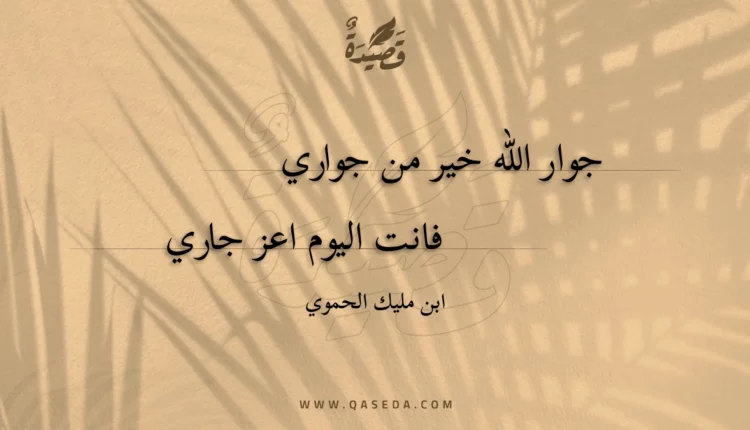 قَصِيْدَةٌ
جوار الله خير من جواري
فانت اليوم اعز جاري
ابن مليك الحموي
WWW.QASEDA.COM